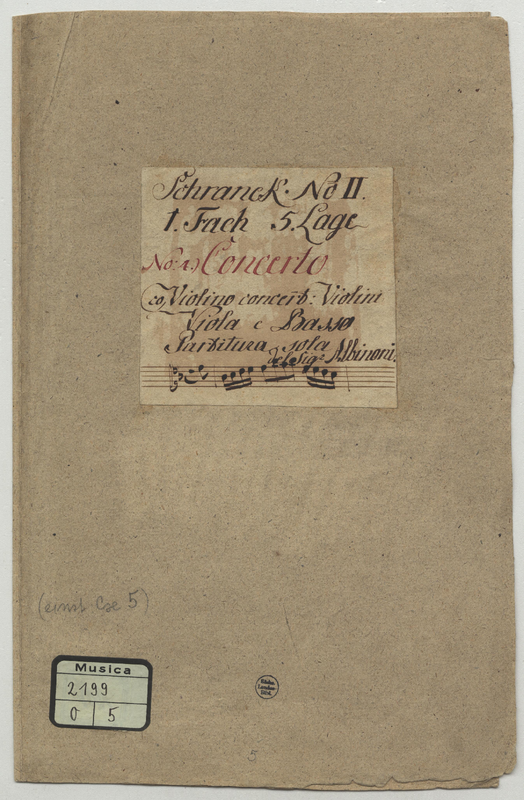 Schranck No II.
1. Fach 5. Lage
No. 1.) Concerto
co Violino concert: Violini
Viola e Basso
Partitura sola
del Sigr. Albinoni.
(einst Cx 5)
Musica
2199
O 5
Sächs.
Landes-
Bibl.
5